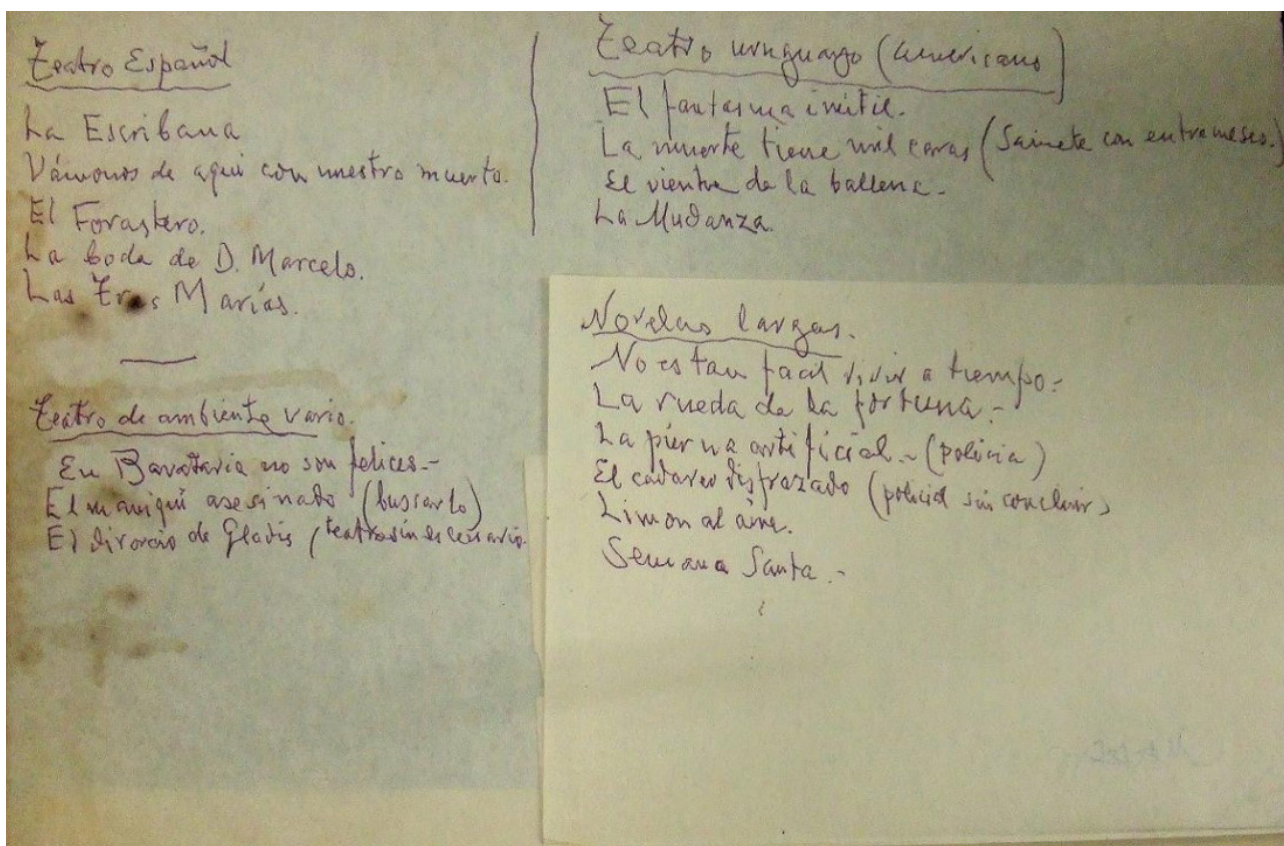 Teatro Español
La Escribana
Vámonos de aquí con nuestro muerto.
El Forastero.
La boda de D. Marcelo.
Las Tres Marías.
Teatro de ambiente vario.
En Barataria no son felices.-
El maniquí asesinado (buscarlo)
El divorcio de Gladis (teatro sin escenario.
Teatro uruguayo (americano)
El fantasma inútil.
La muerte tiene mil caras (Sainete con entremeses.)
El vientre de la ballena.-
La Mudanza.
Novelas largas.
No es tan facil vivir a tiempo.-
La rueda de la fortuna.-
La pierna artificial.- (policia)
El cadaver disfrazado (policial sin concluir)
Limon al
Semana Santa.-